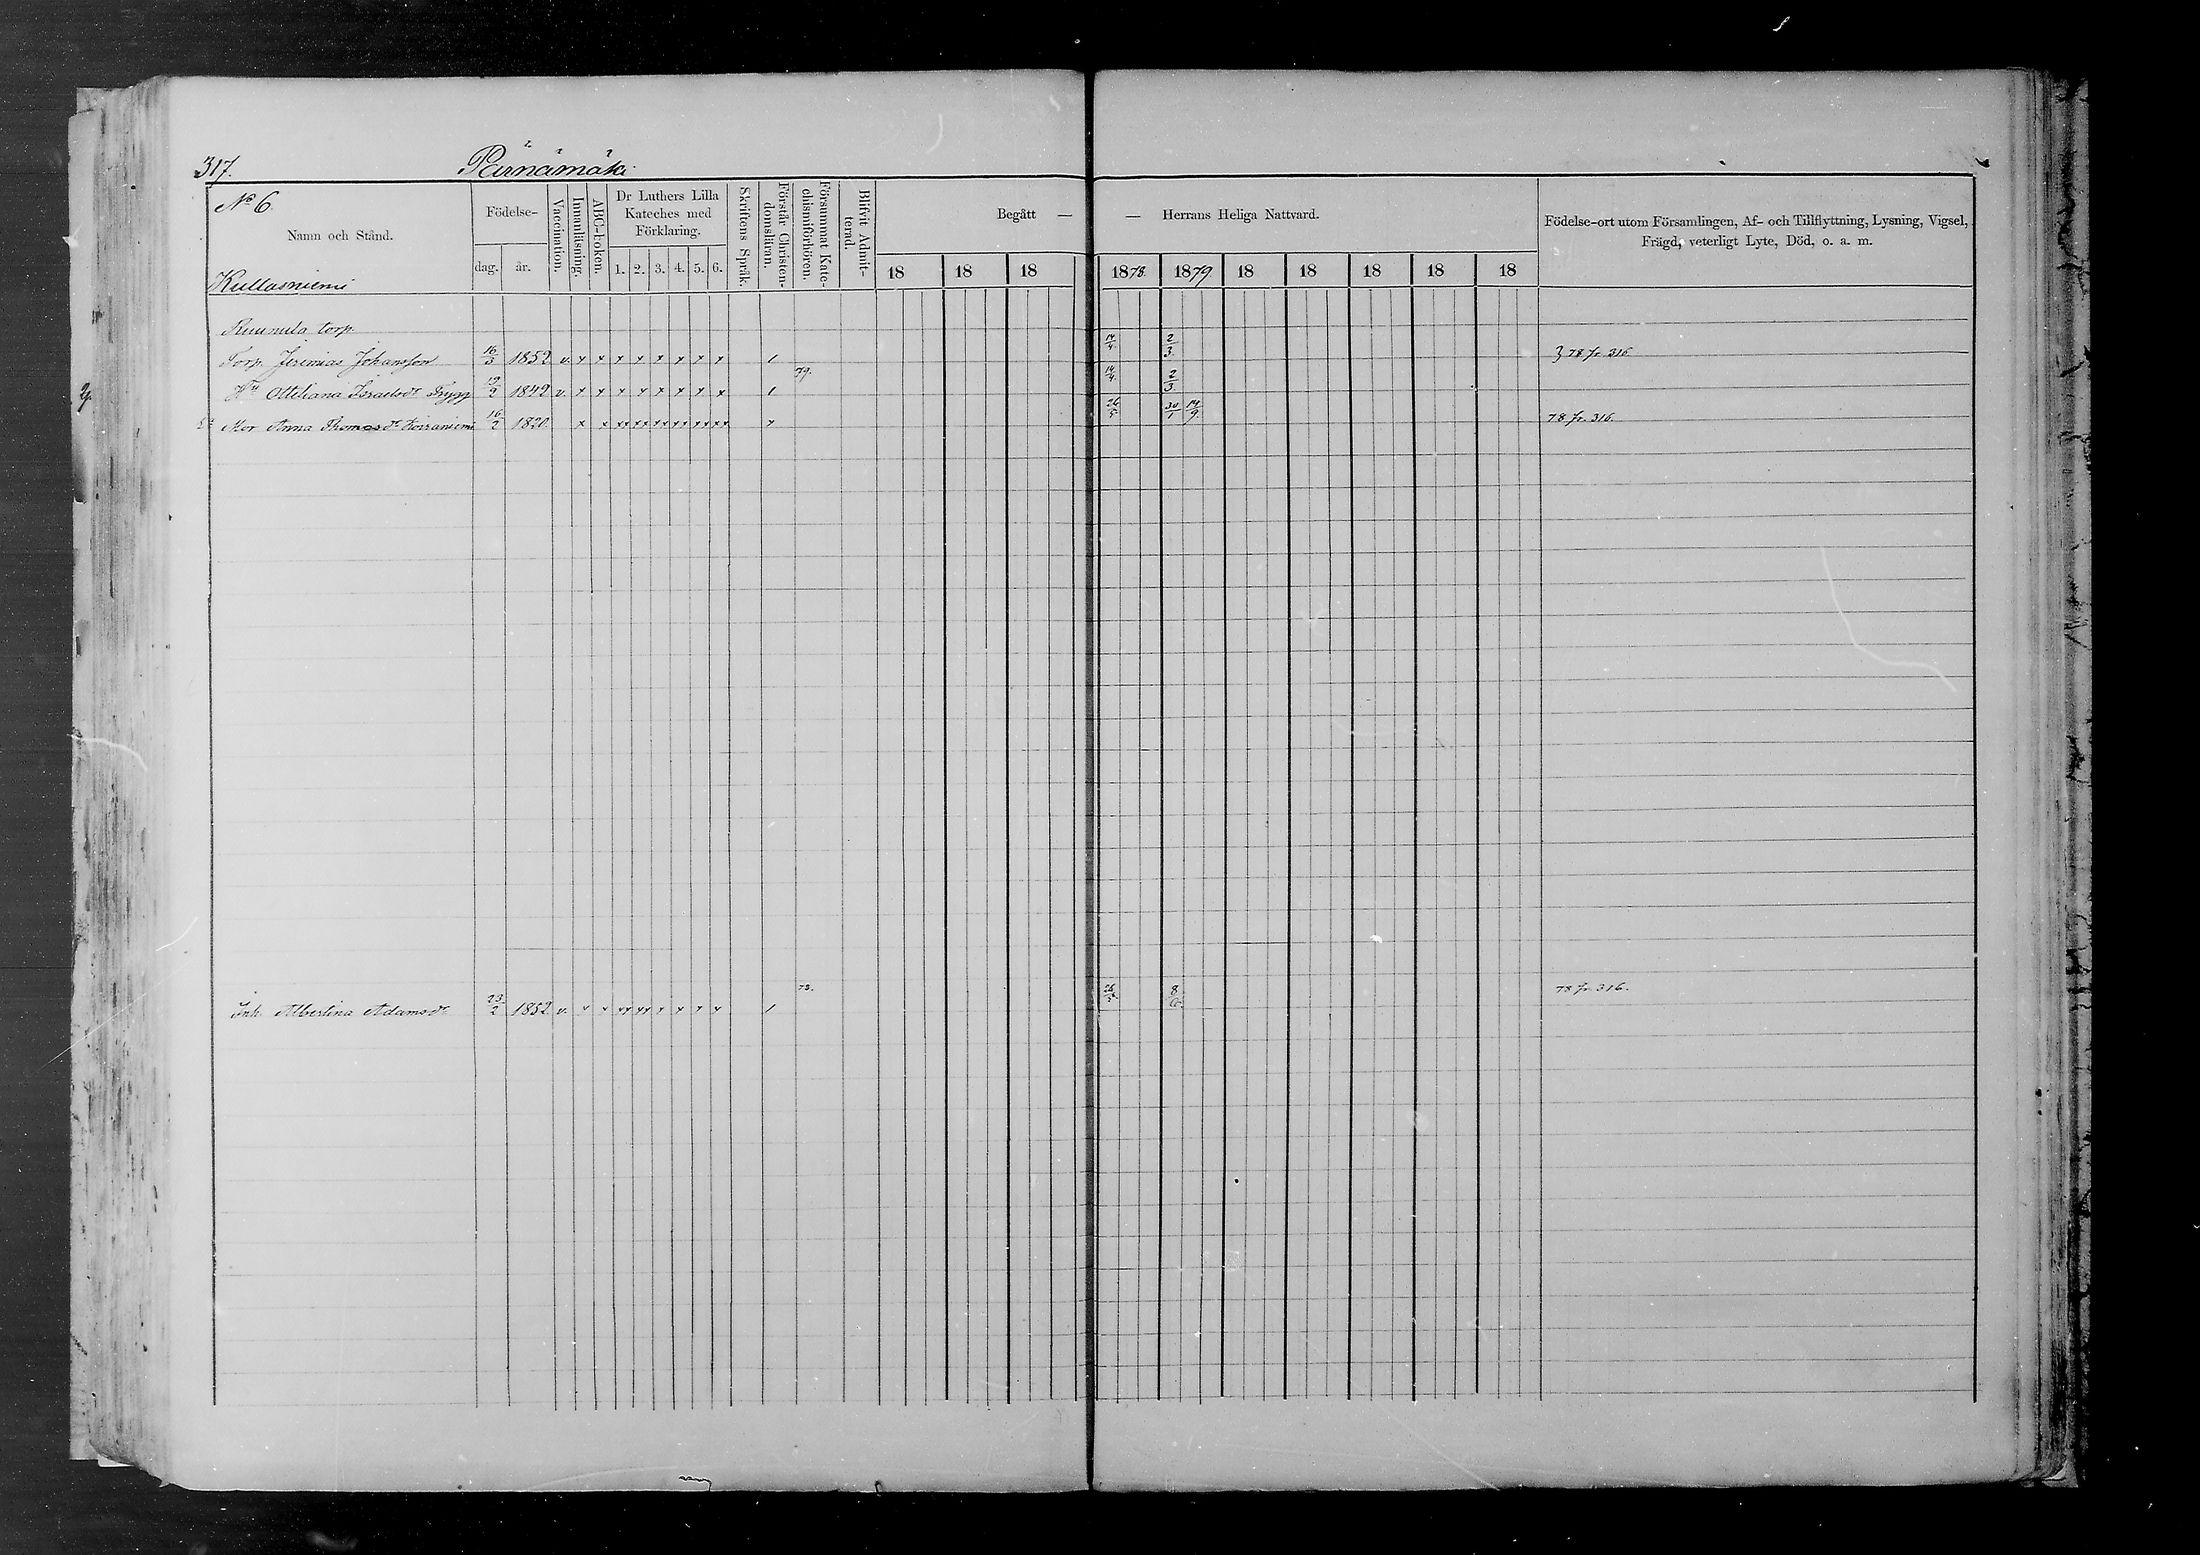 317.
Pärnämäki
No 6.
Namn och Stånd.
Kullasniemi
Födelse-
dag. år.
Vaccination.
Innanläsning.
ABC-boken.
Dr Luthers Lilla
Kateches med
Förklaring.
1. 2. 3. 4. 5. 6.
Skriftens Språk.
Förstår Christen-
domsläran.
Försummat Kate-
chismiförhören.
Blifvit Admit-
terad.
Begått — — Herrans Heliga Nattvard.
18 18 18 1878. 1879. 18 18 18 18 18
Födelse-ort utom Församlingen, Af- och Tillflyttning, Lysning, Vigsel,
Frägd, veterligt Lyte, Död, o. a. m.
torp.
Torp. Jeremias Johansson 16/3 1852 v. x x x x x x x x 1 14/4 2/3 } 78 fr. 316
Hu Ottiliana Israelsdr Trygg 19/2 1842 v. x x x x x x x x 1 79. 14/4 2/3
Mor Anna Thomasdr 16/2 1820 x x xx xx xx xx xx xx x 26/5 30/1 14/9 78 fr. 316.
Inh. Albertina Adamsdr 23/2 1852 v. x x xx xx x x x x 1 78. 26/5 8/6 78 fr. 316.